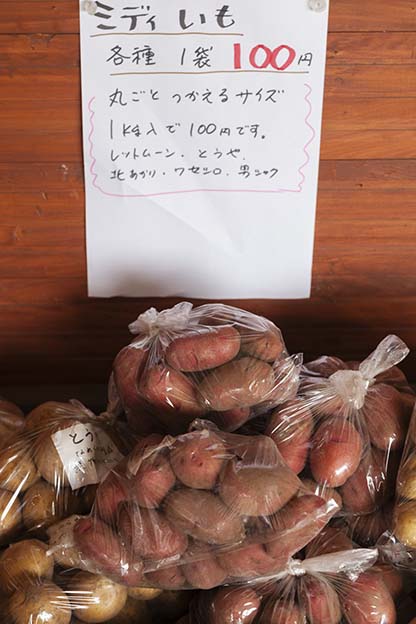 ミディいも
各種 1袋 100円
丸ごとつかえるサイズ
1K入で100円です。
レットムーン・とうや、
北あかり・ワセシロ、男シャク
とうや